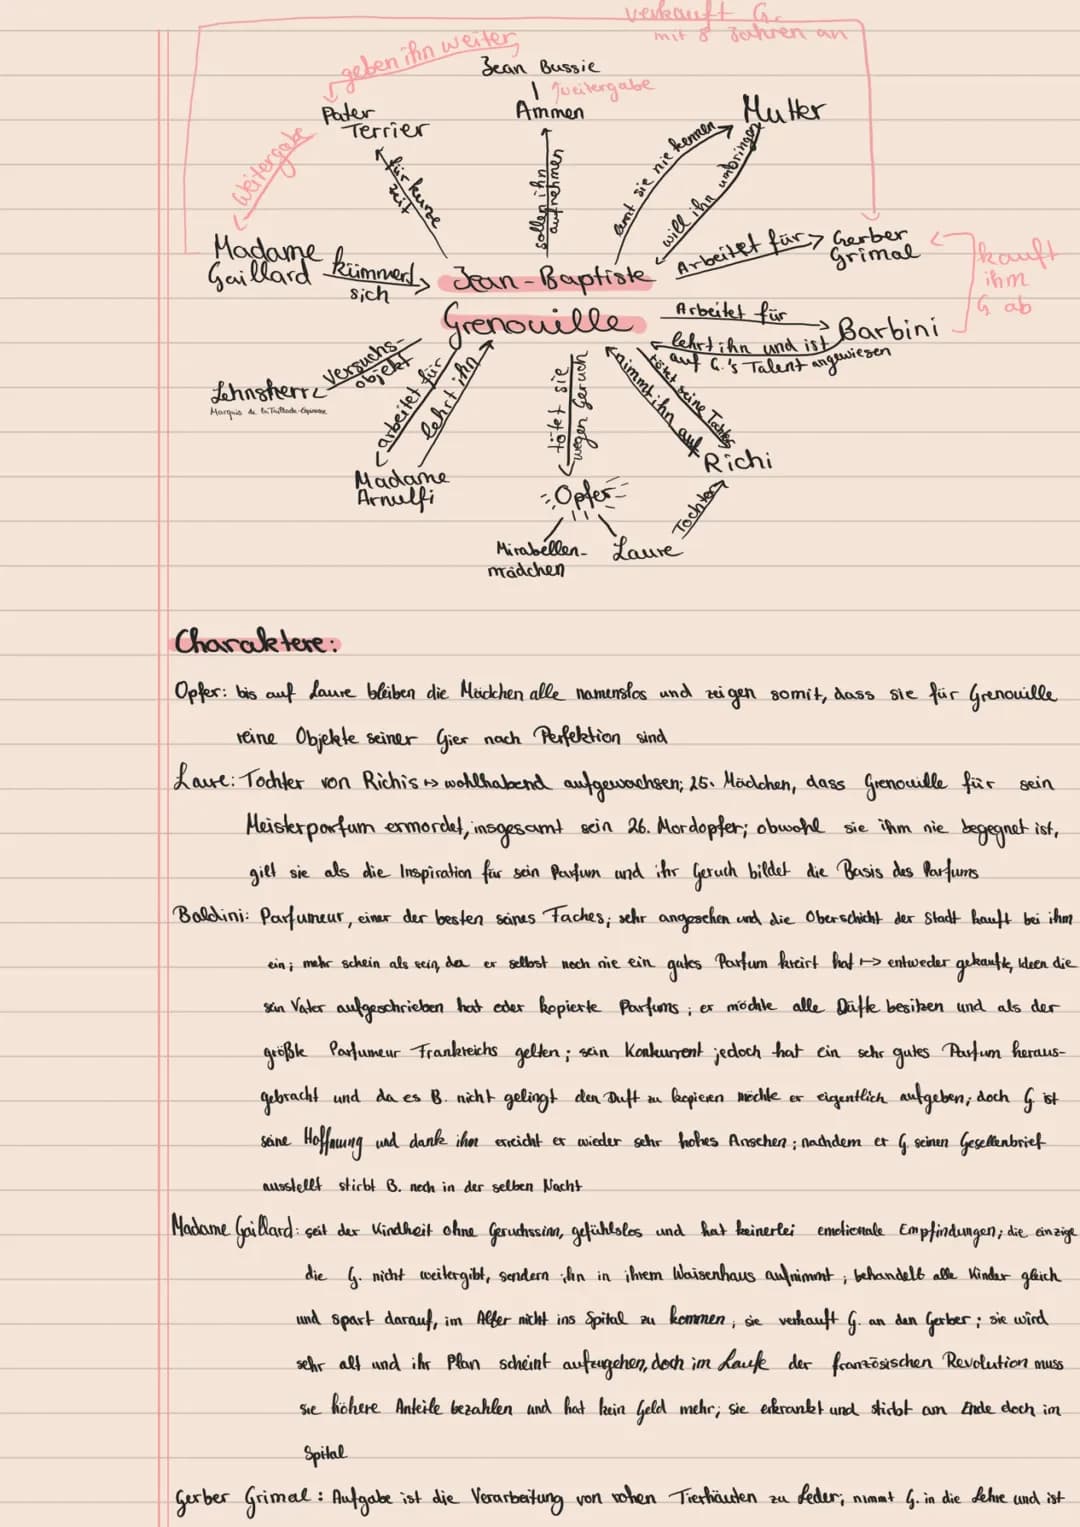 verkauft G.
mit 8 Jahren an
geben ihn weiter
Jean Bussie
Weitergabe
Ammen
Pater
Terrier
Mutter
Weitergabe
für kurze
zeit
sollen ihn
aufnehmen
lernt sie nie kennen
will ihn umbringen
Madame
Gaillard
kümmert
sich
Jean-Baptiste
Grenouille
Arbeitet für
Gerber
Grimal
kauft
ihm
G ab
Arbeitet für
Barbini
lehrt ihn und ist
auf G.'s Talent angewiesen
versuchs-
objekt
Lehnsherr
Marquis de la Taillade-Espinasse
arbeitet für
lehrt ihn
Madame
Arnulfi
tötet sie
wegen Geruch
nimmt ihn auf
tötet seine Tochter
Richi
Opfer
Tochter
Mirabellen-
mädchen
Laure
Charaktere:
Opfer: bis auf Laure bleiben die Mädchen alle namenslos und zeigen somit, dass sie für Grenouille
reine Objekte seiner Gier nach Perfektion sind
Laure: Tochter von Richis ↦ wohlhabend aufgewachsen; 25. Mädchen, dass Grenouille für sein
Meisterparfum ermordet, insgesamt sein 26. Mordopfer; obwohl sie ihm nie begegnet ist,
gilt sie als die Inspiration für sein Parfum und ihr Geruch bildet die Basis des Parfums
Baldini: Parfumeur, einer der besten seines Faches; sehr angesehen und die Oberschicht der Stadt kauft bei ihm
ein; mehr schein als sein, da er selbst noch nie ein gutes Parfum kreirt hat ↦ entweder gekaufte, Ideen die
sein Vater aufgeschrieben hat oder kopierte Parfums; er möchte alle Düfte besitzen und als der
größte Parfumeur Frankreichs gelten; sein Konkurrent jedoch hat ein sehr gutes Parfum heraus-
gebracht und da es B. nicht gelingt den Duft zu kopieren möchte er eigentlich aufgeben; doch G ist
seine Hoffnung und dank ihm erreicht er wieder sehr hohes Ansehen; nachdem er G seinen Gesellenbrief
ausstellt stirbt B. noch in der selben Nacht
Madame Gaillard: seit der Kindheit ohne Geruchssinn, gefühlslos und hat keinerlei emotionale Empfindungen; die einzige
die G. nicht weitergibt, sondern ihn in ihrem Waisenhaus aufnimmt; behandelt alle Kinder gleich
und spart darauf, im Alter nicht ins Spital zu kommen; sie verkauft G. an den Gerber; sie wird
sehr alt und ihr Plan scheint aufzugehen, doch im Laufe der französischen Revolution muss
sie höhere Anteile bezahlen und hat kein Geld mehr; sie erkrankt und stirbt am Ende doch im
Spital
Gerber Grimal: Aufgabe ist die Verarbeitung von rohen Tierhäuten zu Leder; nimmt G. in die Lehre und ist